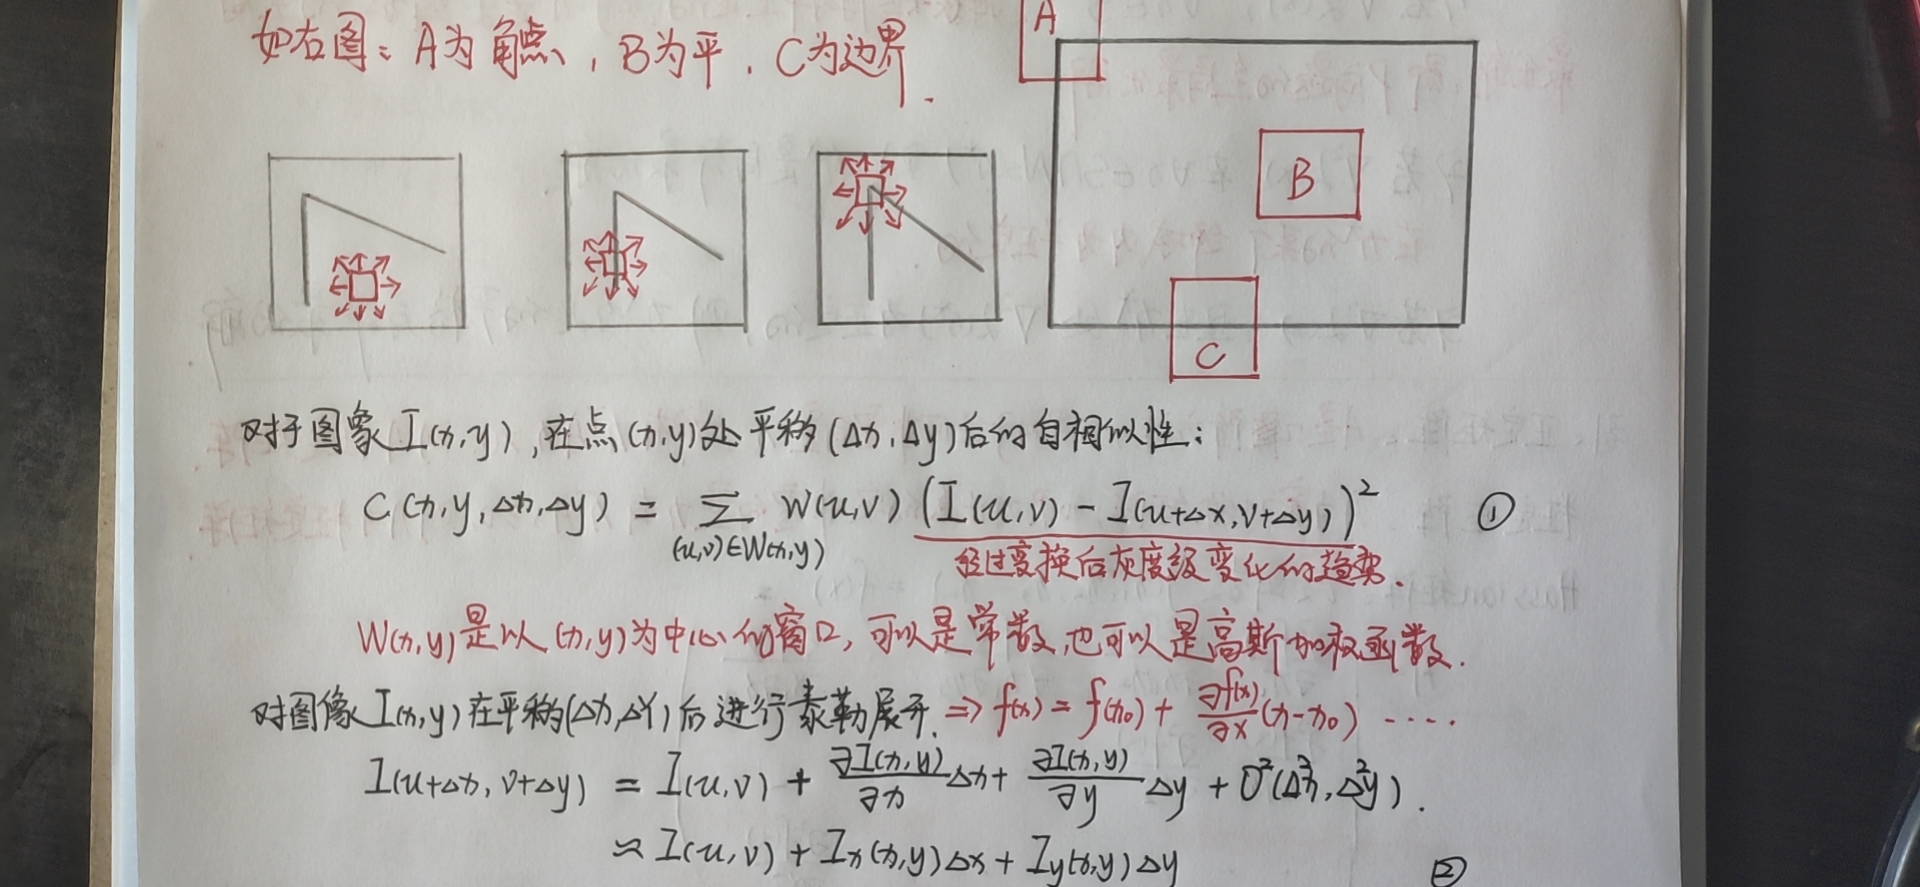 如右图：A为角点，B为平，C为边界.
A
B
C
对于图象I(x,y),在点(x,y)处平移(Δx,Δy)后的自相似性:
C(x,y,Δx,Δy) = Σ W(u,v) (I(u,v) - I(u+Δx,v+Δy))² ①
(u,v)∈W(x,y)
经过变换后灰度级变化的趋势.
W(x,y)是以(x,y)为中心的窗口,可以是常数,也可以是高斯加权函数.
对图像I(x,y)在平移(Δx,ΔY)后进行泰勒展开. ⇒ f(x) = f(x₀) + ∂f(x)/∂x (x-x₀) ....
I(u+Δx, v+Δy) = I(u,v) + ∂I(x,y)/∂x Δx + ∂I(x,y)/∂y Δy + O²(Δ²x, Δ²y).
≈ I(u,v) + Ix(x,y)Δx + Iy(x,y)Δy ②